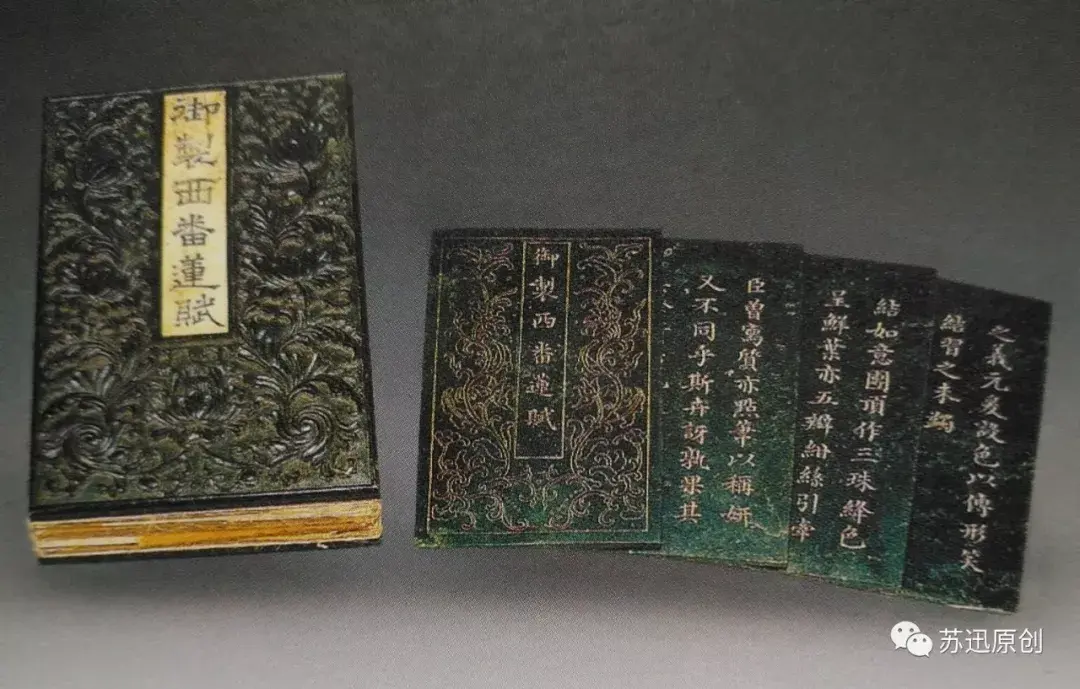 御製西番蓮賦
御製西番蓮賦
臣曾寫質亦點筆以稱妍
又不同乎斯卉訝孰果其
結如意團頂作三珠絳色
呈鮮葉亦五瓣紺絲引牽
之義元爰設色以傳形笑
結習之未蠲
苏迅原创